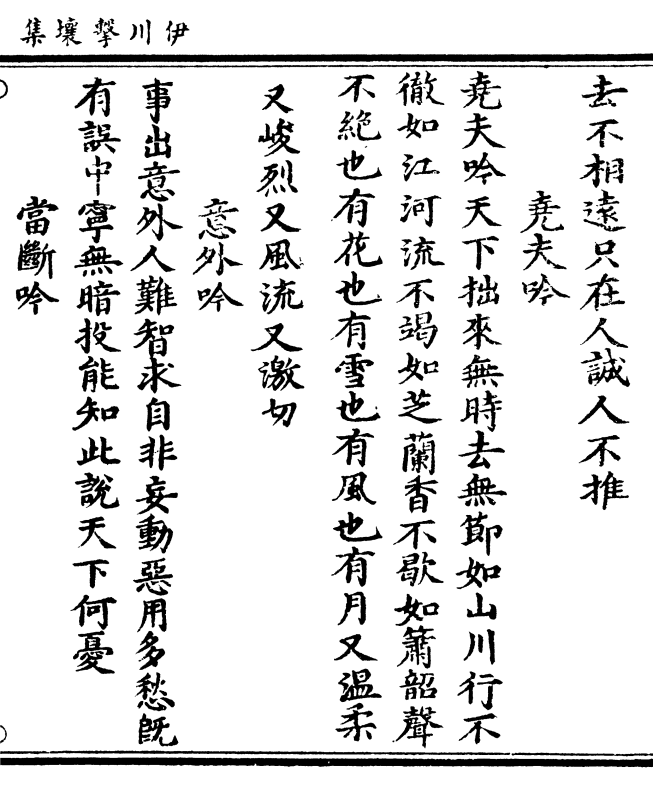 伊川擊壤集
去不相遠只在人誠人不推
堯夫吟
堯夫吟天下拙來無時去無節如山川行不
徹如江河流不竭如芝蘭香不歇如簫韶聲
不絕也有花也有雪也有風也有月又溫柔
又峻烈又風流又激切
意外吟
事出意外人難智求自非妄動惡用多愁旣
有誤中寧無暗投能知此說天下何憂
當斷吟